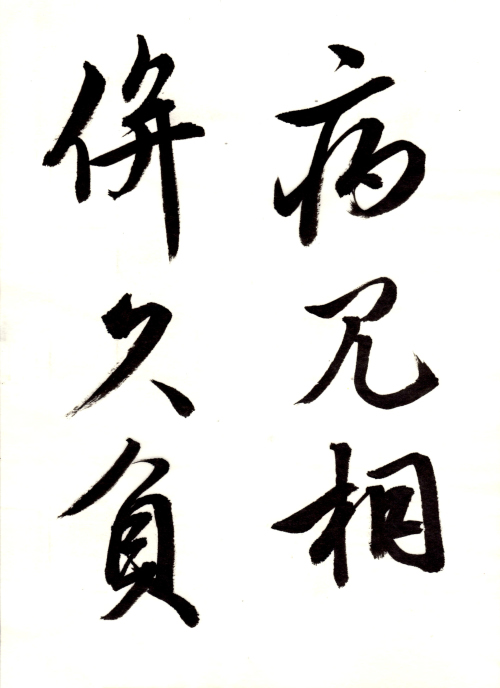 病見相
併久負